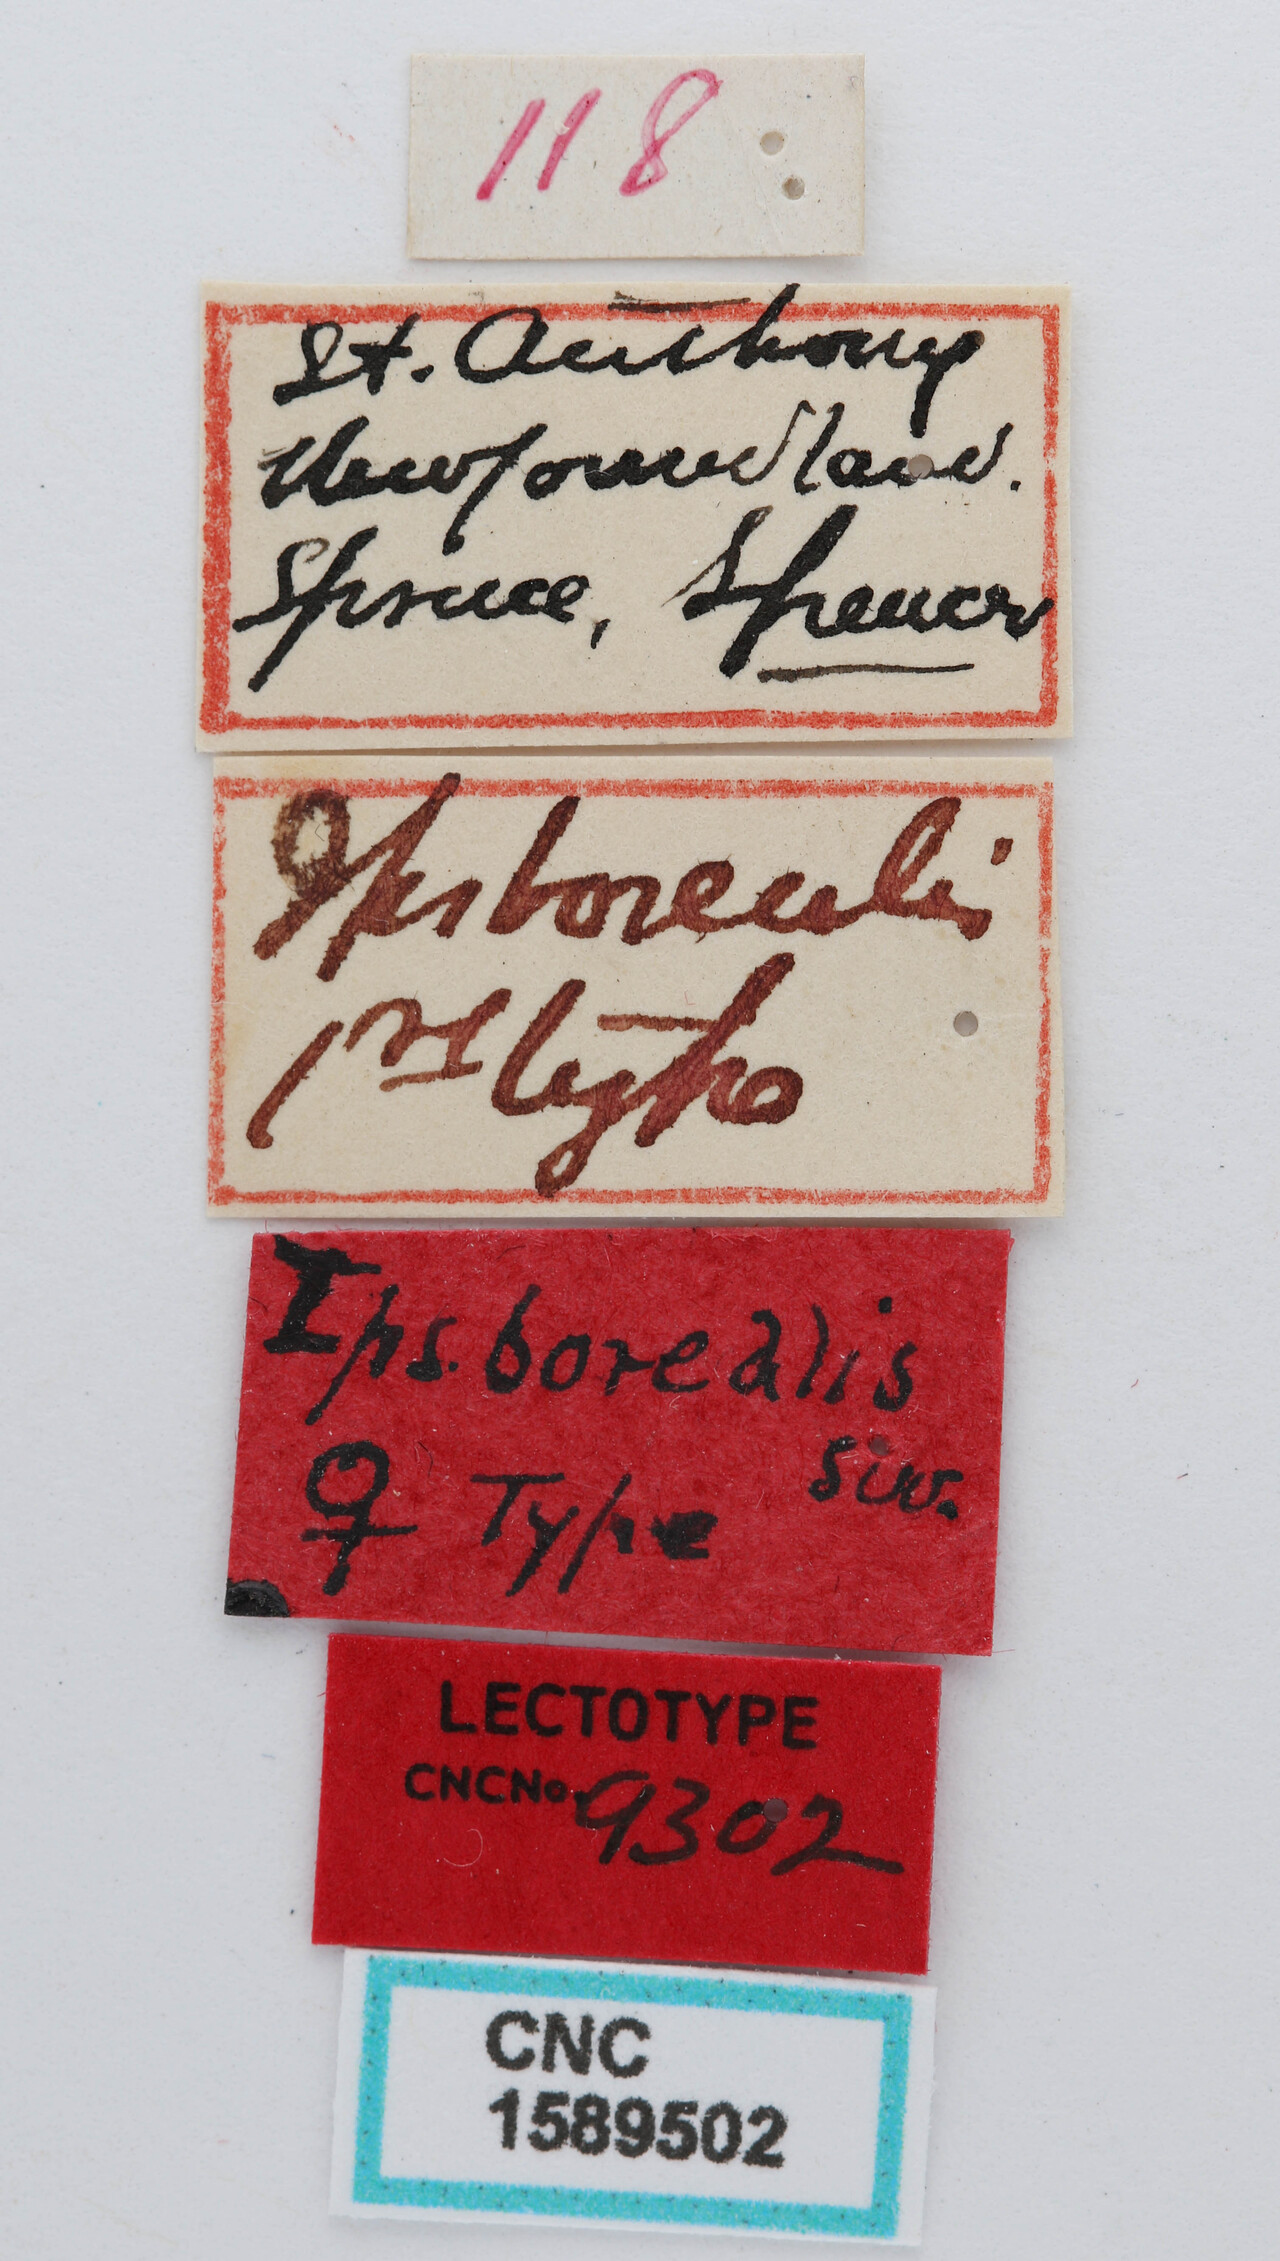 118
St. Anthony
Newfoundland.
Spruce, Spencer
Ips borealis
♀ Type
Ips. borealis
Sw.
♀ Type
LECTOTYPE
CNCNo. 9302
CNC
1589502